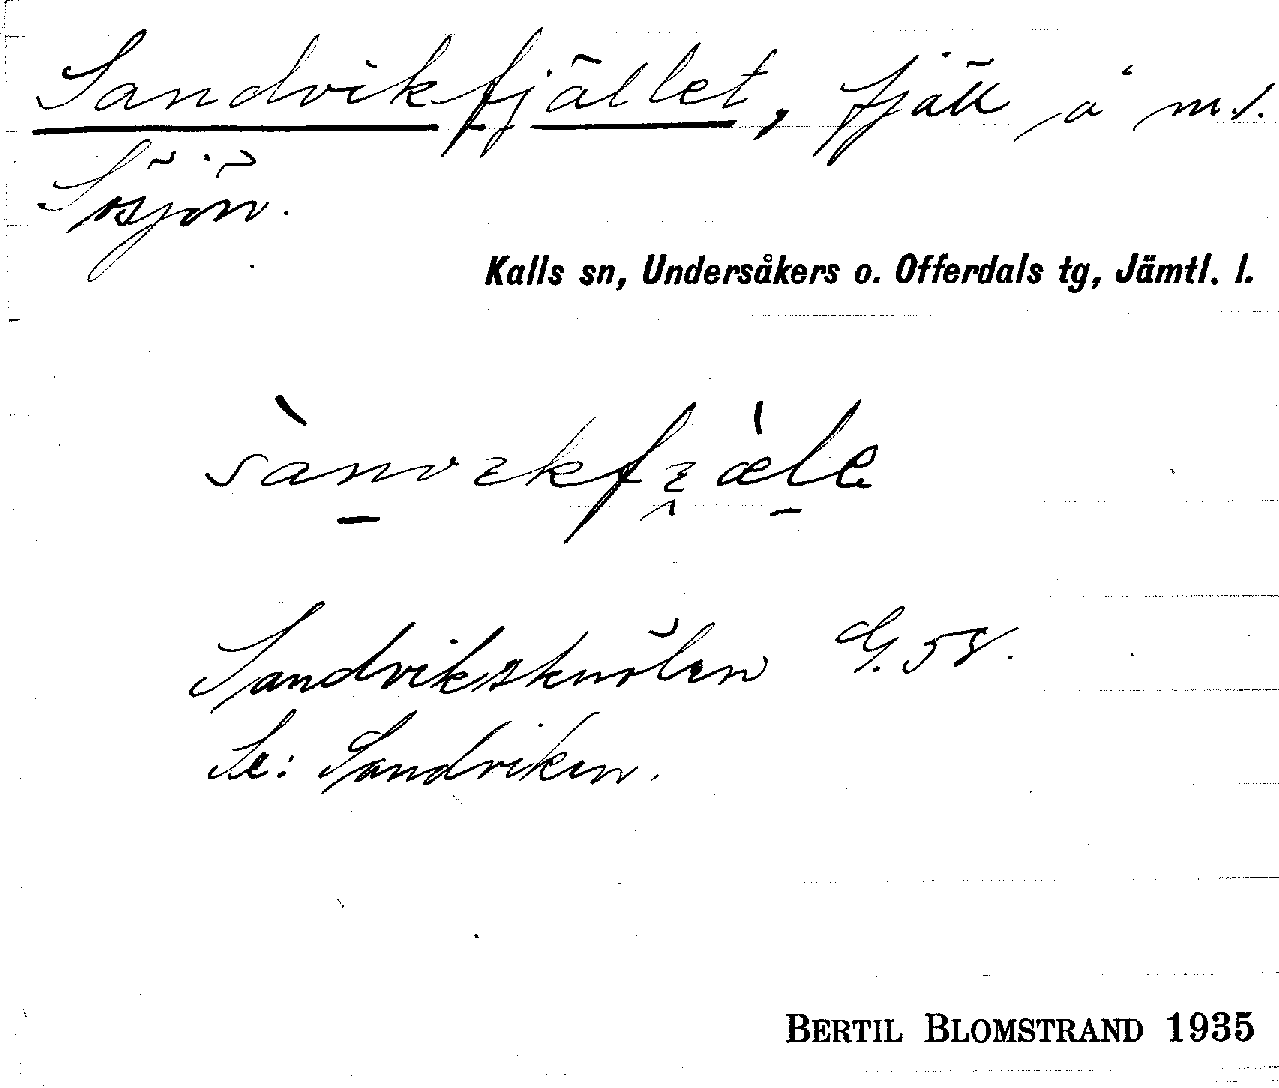 Sandvikfjället, fjäll å m s.
Ösjön.
Kalls sn, Undersåkers o. Offerdals tg, Jämtl. l.
Sandviksknölen G. 58.
Se: Sandviken.
BERTIL BLOMSTRAND 1935